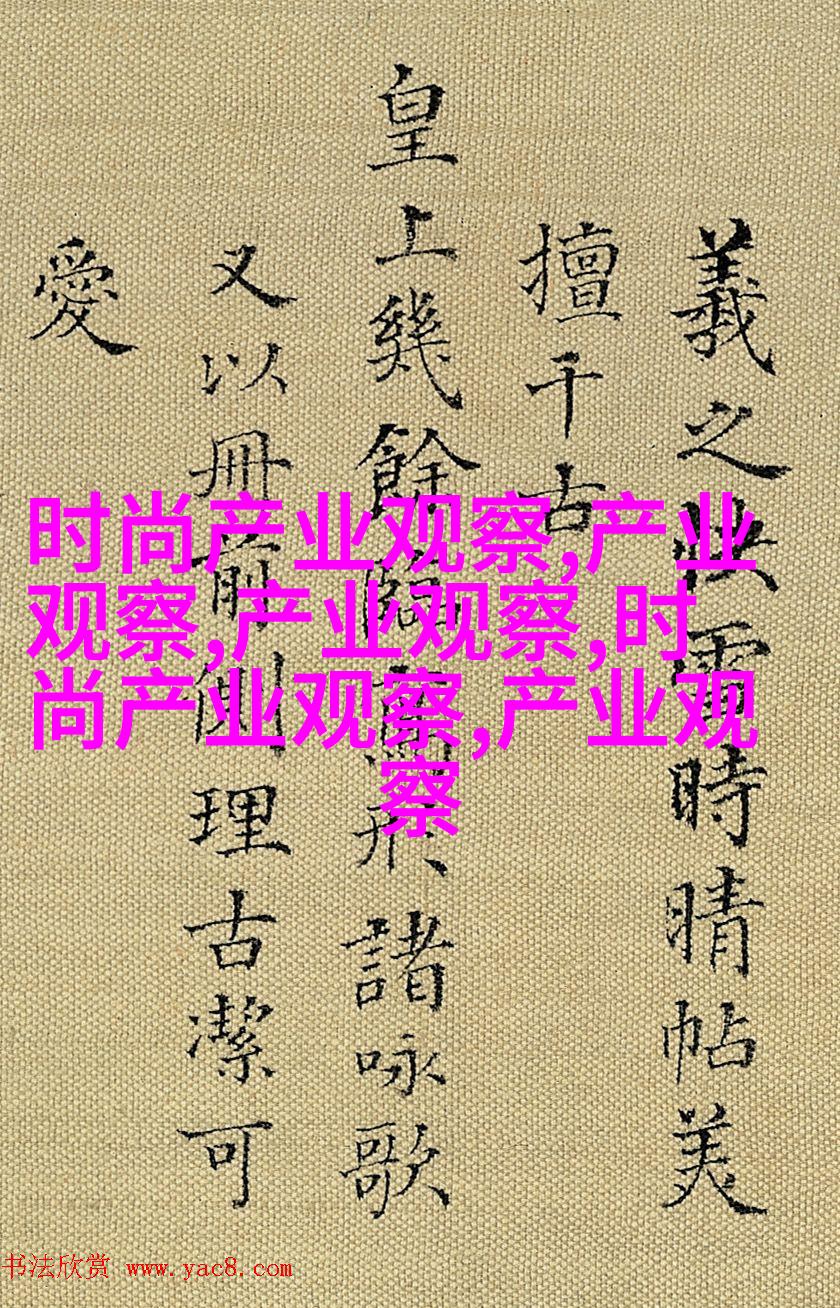 羲之快雪時晴帖美
擅千古
皇上幾餘臨寫形諸咏歌
又以冊前側理古潔可
愛
时尚产业观察,产业
观察,产业观察,时
尚产业观察,产业观
察
书法欣赏 www.yac8.com